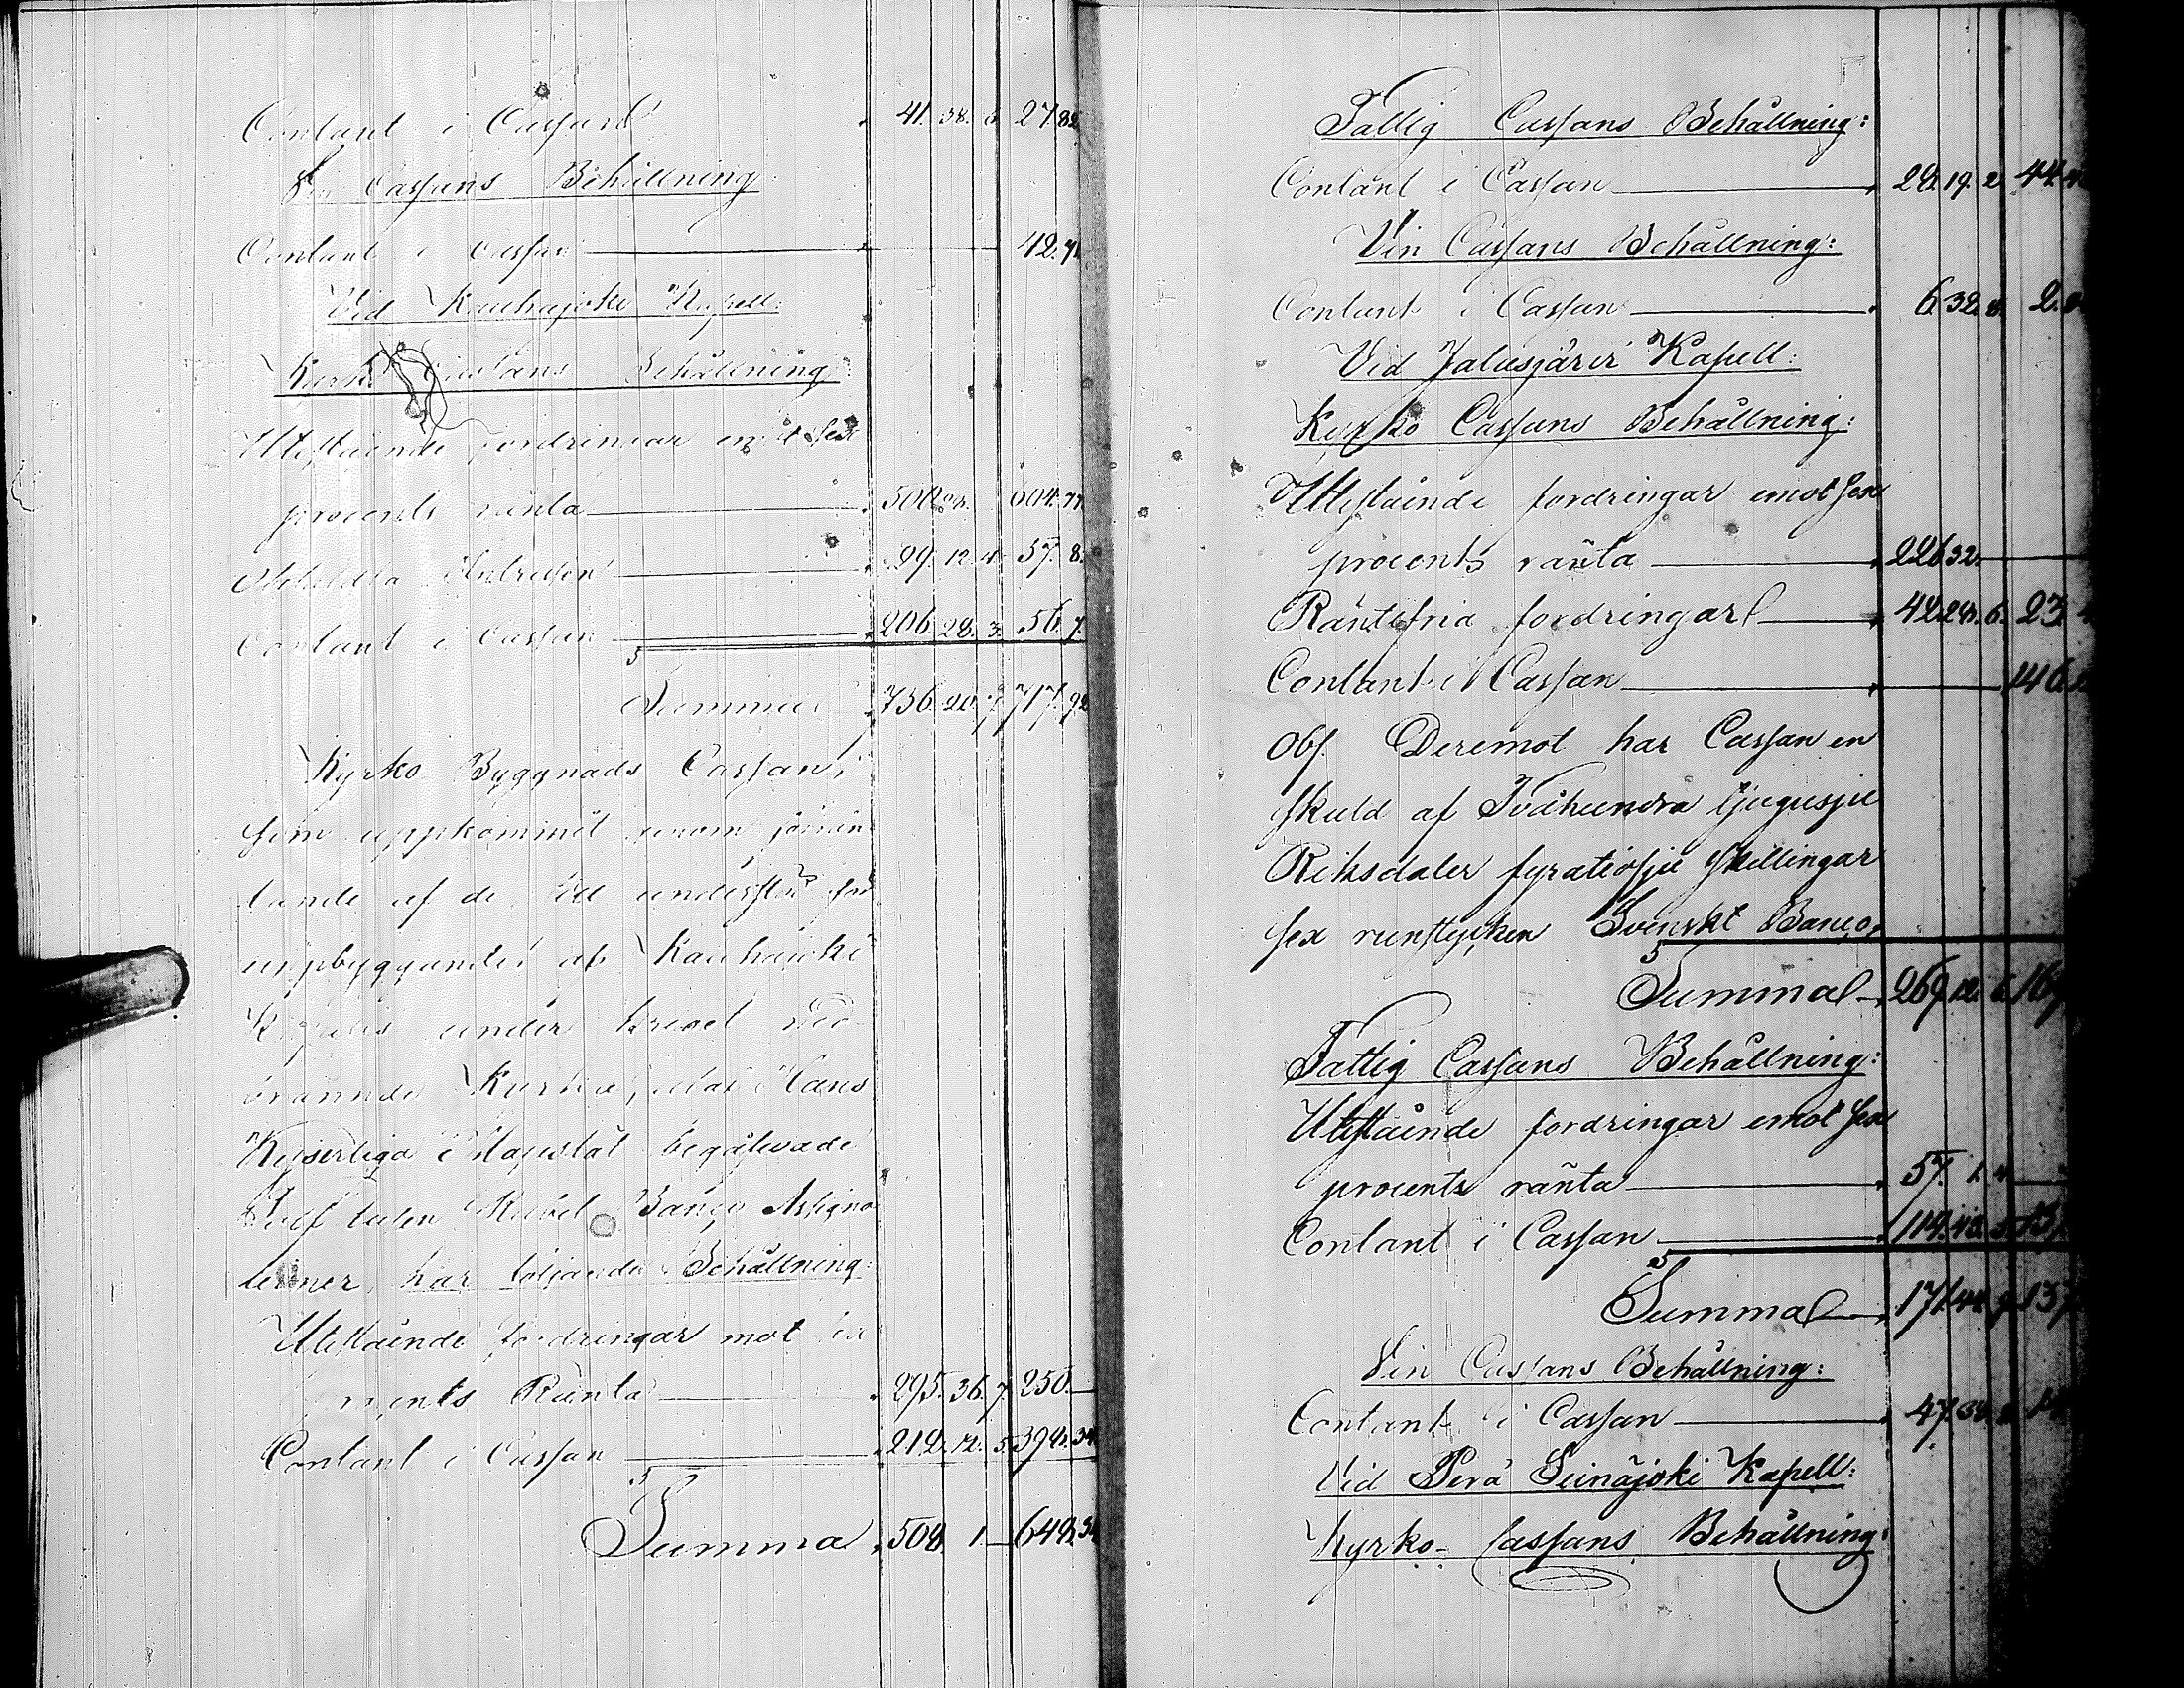 Contant i Cassan 41. 38. 6 27. 82
Vin Cassans Behållning
Contant i Cassan 42. 71
Vid Kauhajoki Kapell:
Kyrko Cassans Behållning:
Utestående fordringar emot sex
procents ränta 500. 604. 77
29. 12. 4. 57. 8.
Contant i Cassan 206. 28. 3. 56. 7.
Summa 736. 20. 7. 717. 92
Kyrko Byggnads Cassan,
som uppkommit genom
af de till understöd för
uppbyggandet af Kauhajoki
Kapells under kriget
brännda Kyrka, utaf Hans
Kejserliga Majestät begåfvade
Tolf tusen Rubel Banco Assigna
tioner, har följande Behållning:
Utestående fordringar mot sex
Ränta 295. 36. 7. 250. —
Contant i Cassan 212. 12. 5. 398. 34
Summa 508. 1. — 648. 34
Fattig Cassans Behållning:
Contant i Cassan 24. 19. 2. 44.
Vin Cassans Behållning:
Contant i Cassan 6. 32. 8. 2.
Vid Jalasjärvi Kapell:
Kyrko Cassans Behållning:
Utestående fordringar emot sex
procents ränta 226 32.
Räntefria fordringar 42. 28. 6. 23.
Contant i Cassan 146.
Obs. Deremot har Cassan en
skuld af Tvåhundra tjugusju
Riksdaler fyratiosju skillingar
sex runstycken Svenskt Banco.
Summa 269. 12. 6.
Fattig Cassans Behållning:
Utestående fordringar emot sex
procents ränta 57. 1. 4.
Contant i Cassan 114.
Summa 171. 44. 9. 137
Vin Cassans Behållning:
Contant i Cassan 47.
Vid Perä Seinäjoki Kapell:
Kyrko- Cassans Behållning: